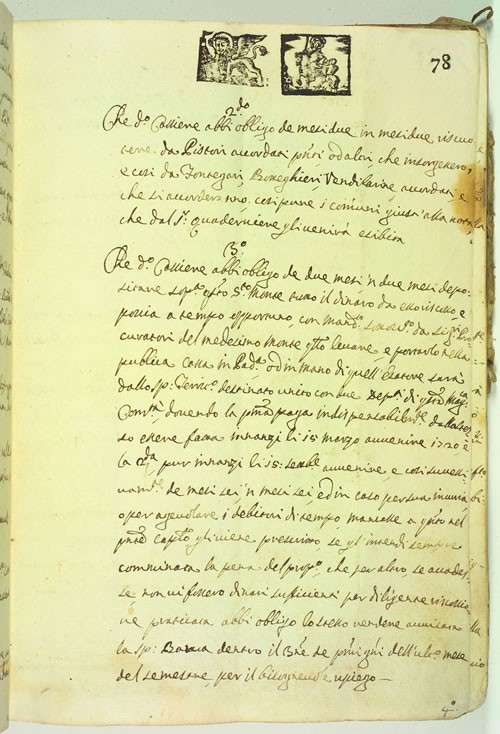 78
2do
Che do Cassiere abbi obligo de mesi due in mesi due riscuo
tere da Pistori accordati pnti, od altri, che insorgessero,
e così da Fontegari, Boteghieri, Vendifarine accordati, e
che si accorderanno, così pure i comuni giusta alla nota,
che dal Sr. Quaderniere gli venirà esibita
3o
Che do Cassiere abbi obligo de due mesi 'n due mesi depo-
sitare sopra Sto Monte tutto il dinaro da esso riscosso, e
poscia a tempo opportuno, con mando da Sigri Pro
curatori del medesimo Monte levare, e portarlo nella
publica cassa in Pada. od in mano di quell'Esatore sarà
dallo Sp: Territo. destinato unito con due
dovendo la pma paga indispensabilmte
so essere fatta innanzi li 15 marzo avvenire 1720 e
la 2da pur innanzi li 15: settbe avvenire, e così successi
vamte de mesi sei 'n mesi sei ed in caso per sua incuria
o per agevolare i debitori di tempo mancasse a qto nel
pnte capto gli viene prescritto, se gl'intendi sempre
comminata la pena del propo, che per altro se accades
se, non vi fossero dinari sufficienti per diligenze
praticata abbi obligo lo stesso renderne avvisata
la Sp: Banca dentro il
del semestre, per il bisognevole ripiego —
4o